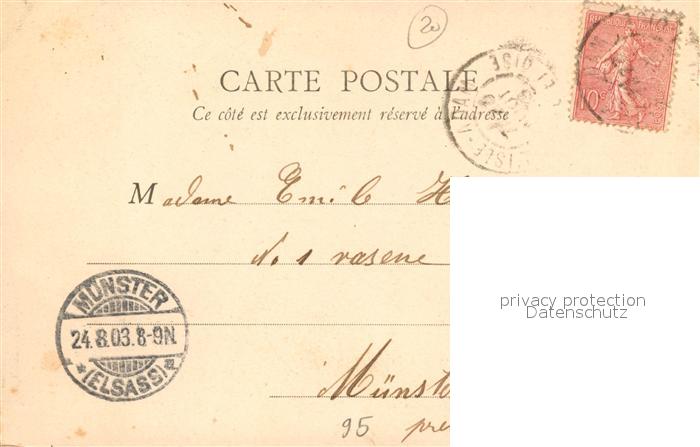 20
REPUBLIQUE FRANÇAISE
10
CARTE POSTALE
Ce côté est exclusivement réservé à l'adresse
L'ISLE-ADAM
OISE
Madame Emile H
No 1
privacy protection
Datenschutz
MÜNSTER
24.8.03.8-9N.
*(ELSASS)*
Münst
95